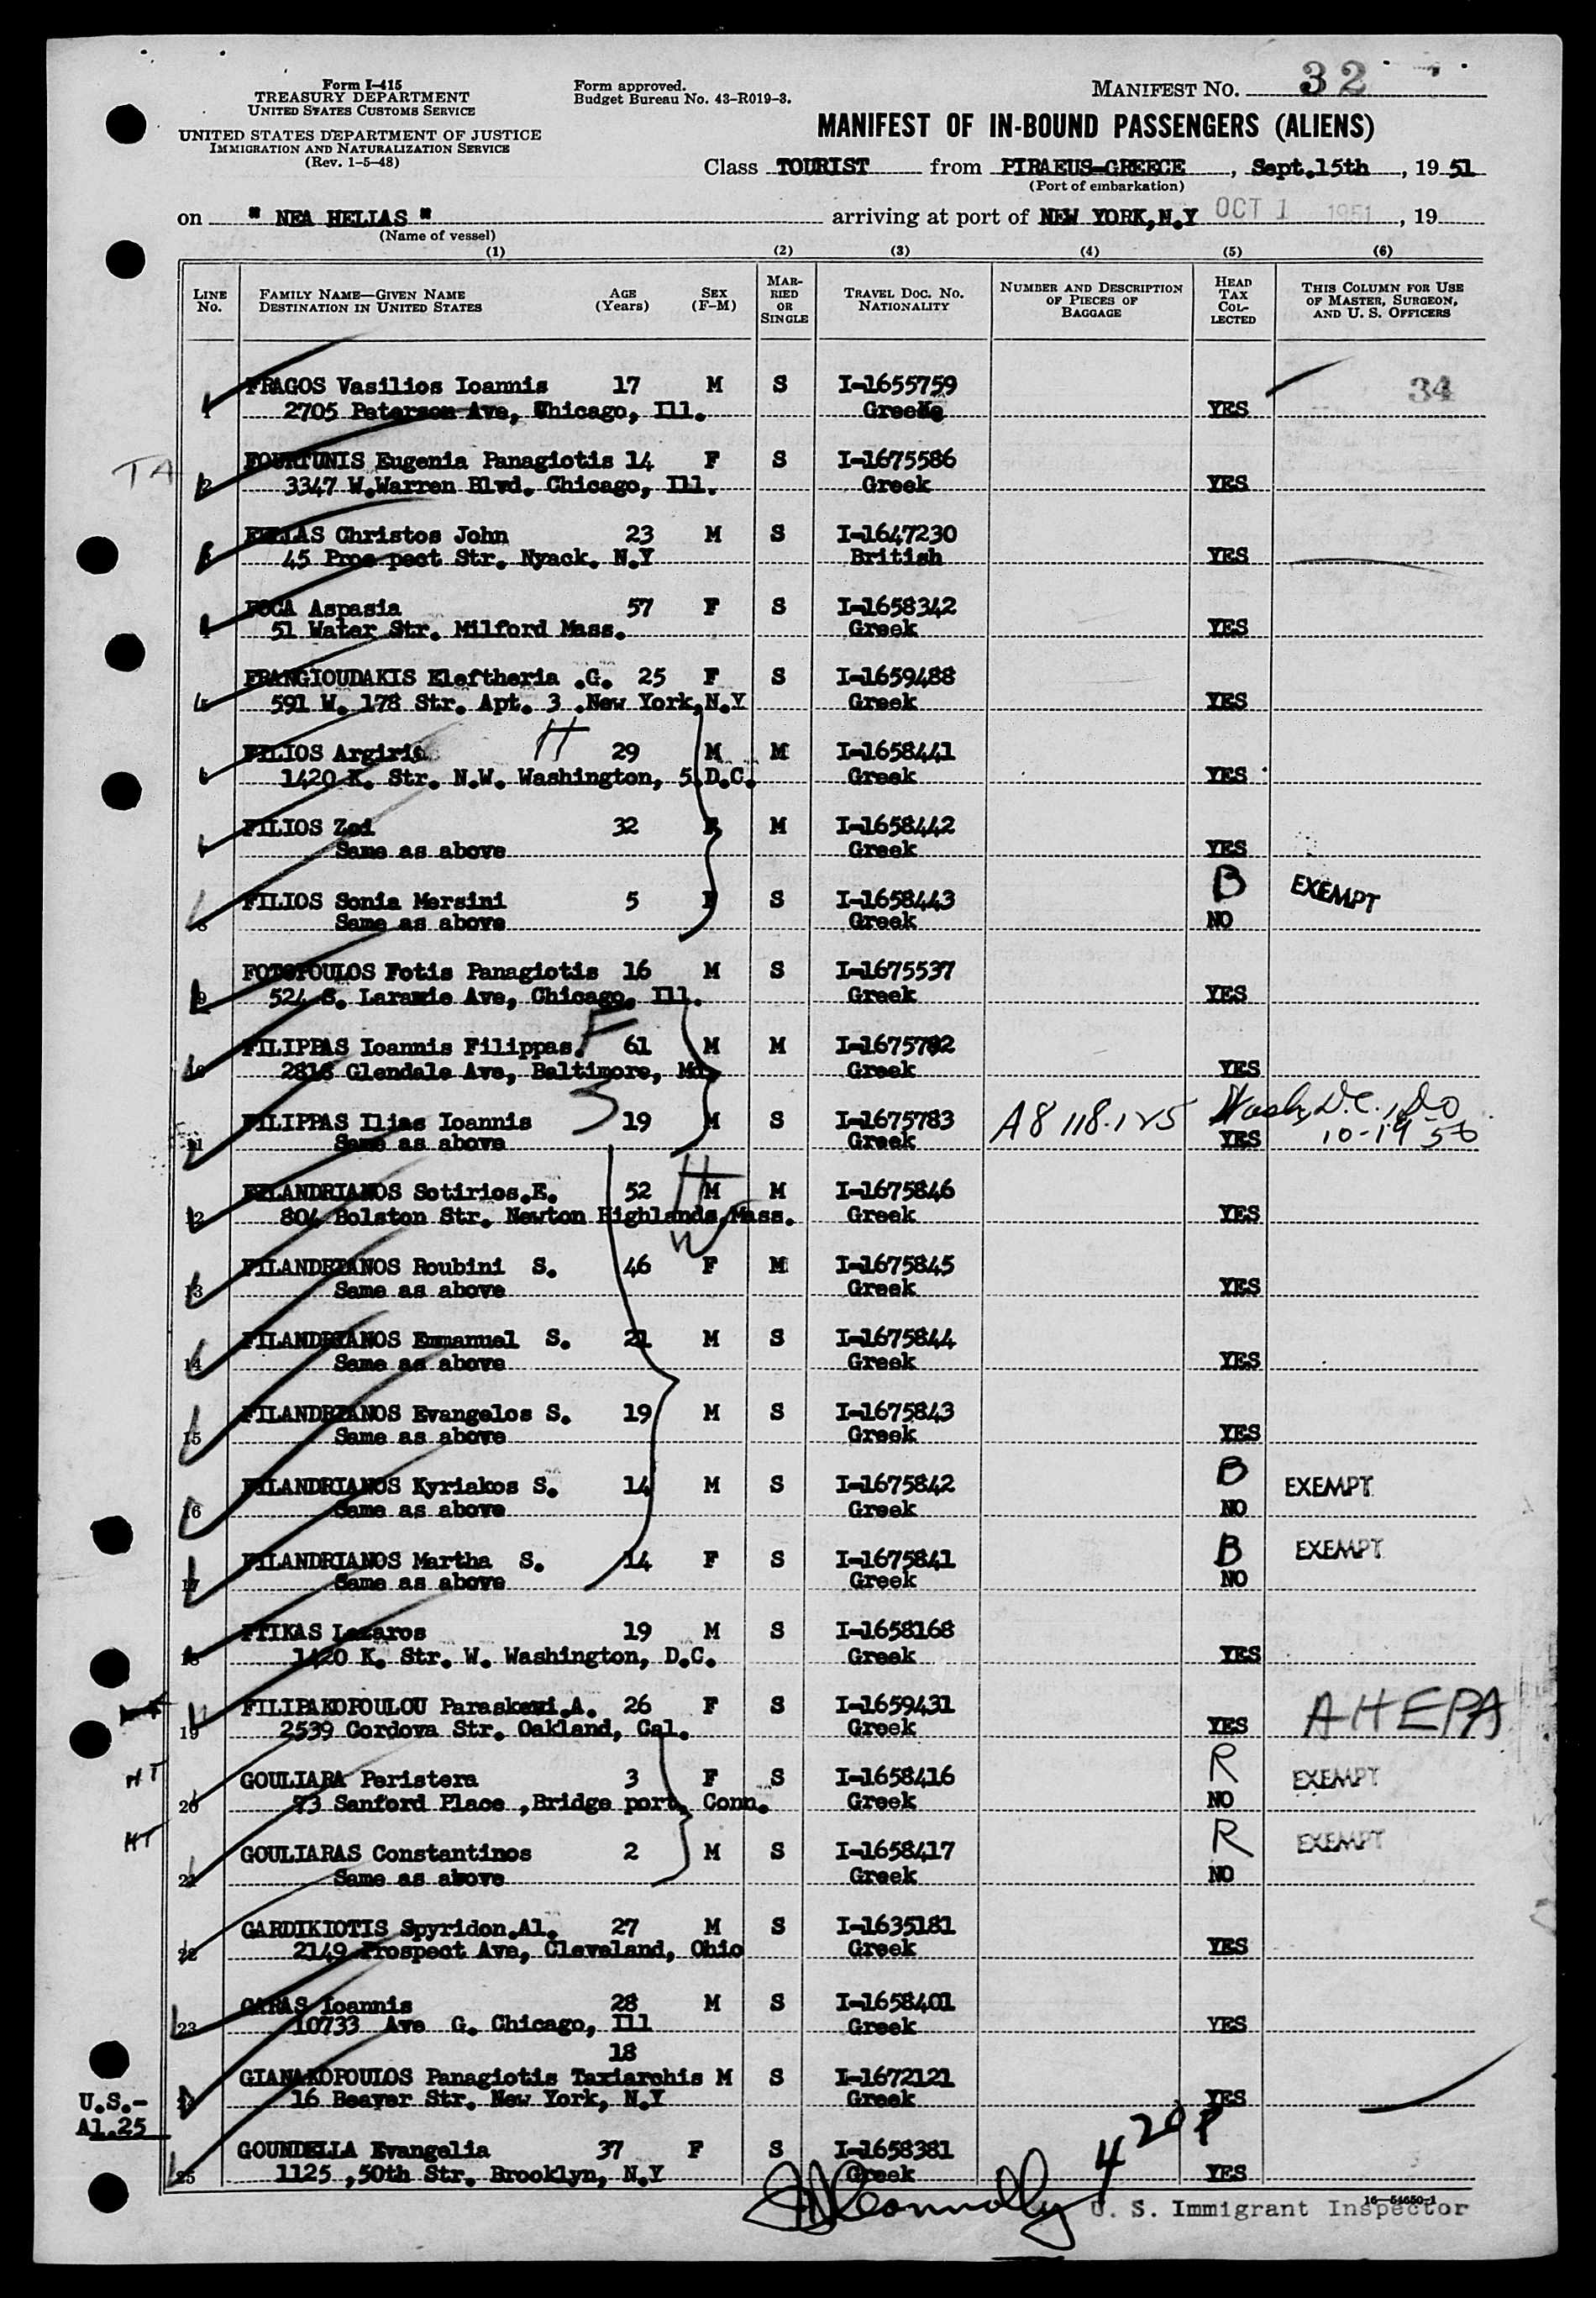 Form I-415
TREASURY DEPARTMENT
UNITED STATES CUSTOMS SERVICE
UNITED STATES DEPARTMENT OF JUSTICE
IMMIGRATION AND NATURALIZATION SERVICE
(Rev. 1-5-48)
Form approved.
Budget Bureau No. 43-R019-3.
MANIFEST NO. 32
MANIFEST OF IN-BOUND PASSENGERS (ALIENS)
Class TOURIST from PIRAEUS-GREECE, Sept.15th, 1951
(Port of embarkation)
on " NEA HELIAS " arriving at port of NEW YORK,N.Y OCT 1 1951, 19
(Name of vessel)
(1) (2) (3) (4) (5) (6)
LINE NO. FAMILY NAME—GIVEN NAME DESTINATION IN UNITED STATES AGE (Years) SEX (F-M) MARRIED OR SINGLE TRAVEL DOC. NO. NATIONALITY NUMBER AND DESCRIPTION OF PIECES OF BAGGAGE HEAD TAX COLLECTED THIS COLUMN FOR USE OF MASTER, SURGEON, AND U. S. OFFICERS
FRAGOS Vasilios Ioannis 17 M S I-1655759 34
1 2705 Peterson Ave, Chicago, Ill. Greek YES
TA FOURTUNIS Eugenia Panagiotis 14 F S I-1675586
2 3347 W.Warren Blvd. Chicago, Ill. Greek YES
Christos John 23 M S I-1647230
3 45 Pros pect Str. Nyack. N.Y British YES
FOCA Aspasia 57 F S I-1658342
4 51 Water Str. Milford Mass. Greek YES
FRANGIOUDAKIS Eleftheria .G. 25 F S I-1659488
5 591 W. 178 Str. Apt. 3 .New York,N.Y Greek YES
FILIOS Argiris H 29 M M I-1658441
6 1420 K. Str. N.W. Washington, 5.D.C. Greek YES
FILIOS Zoi 32 F M I-1658442
7 Same as above Greek YES
FILIOS Sonia Mersini 5 F S I-1658443 B EXEMPT
8 Same as above Greek NO
FOTOPOULOS Fotis Panagiotis 16 M S I-1675537
9 524 S. Laramie Ave, Chicago, Ill. Greek YES
FILIPPAS Ioannis Filippas. F 61 M M I-1675782
10 2818 Glendale Ave, Baltimore, Md. Greek YES
FILIPPAS Ilias Ioannis S 19 M S I-1675783 A8 118.125 Wash, D.C., DO
11 Same as above Greek YES 10-19 56
FILANDRIANOS Sotirios.E. 52 H M M I-1675846
12 804 Bolston Str. Newton Highlands,Mass. Greek YES
W
FILANDRIANOS Roubini S. 46 F M I-1675845
13 Same as above Greek YES
FILANDRIANOS Emmanuel S. 21 M S I-1675844
14 Same as above Greek YES
FILANDRIANOS Evangelos S. 19 M S I-1675843
15 Same as above Greek YES
FILANDRIANOS Kyriakos S. 14 M S I-1675842 B EXEMPT
16 Same as above Greek NO
FILANDRIANOS Martha S. 14 F S I-1675841 B EXEMPT
17 Same as above Greek NO
FTIKAS Lazaros 19 M S I-1658168
18 1420 K. Str. W. Washington, D.C. Greek YES
FILIPAKOPOULOU Paraskevi.A. 26 F S I-1659431 AHEPA
19 2539 Cordova Str. Oakland, Cal. Greek YES
HT GOULIARA Peristera 3 F S I-1658416 R EXEMPT
20 93 Sanford Place ,Bridge port, Conn. Greek NO
HT GOULIARAS Constantinos 2 M S I-1658417 R EXEMPT
21 Same as above Greek NO
GARDIKIOTIS Spyridon.Al. 27 M S I-1635181
22 2149 Prospect Ave, Cleveland, Ohio Greek YES
GARAS Ioannis 28 M S I-1658401
23 10733 Ave G. Chicago, Ill Greek YES
18
GIANAKOPOULOS Panagiotis Taxiarchis M S I-1672121
24 16 Beaver Str. New York, N.Y Greek YES
U.S.-
Al.25
GOUNDELLA Evangelia 37 F S I-1658381
25 1125 ,50th Str. Brooklyn, N.Y Greek YES
4 20
Connolly
U. S. Immigrant Inspector
16—54650-1